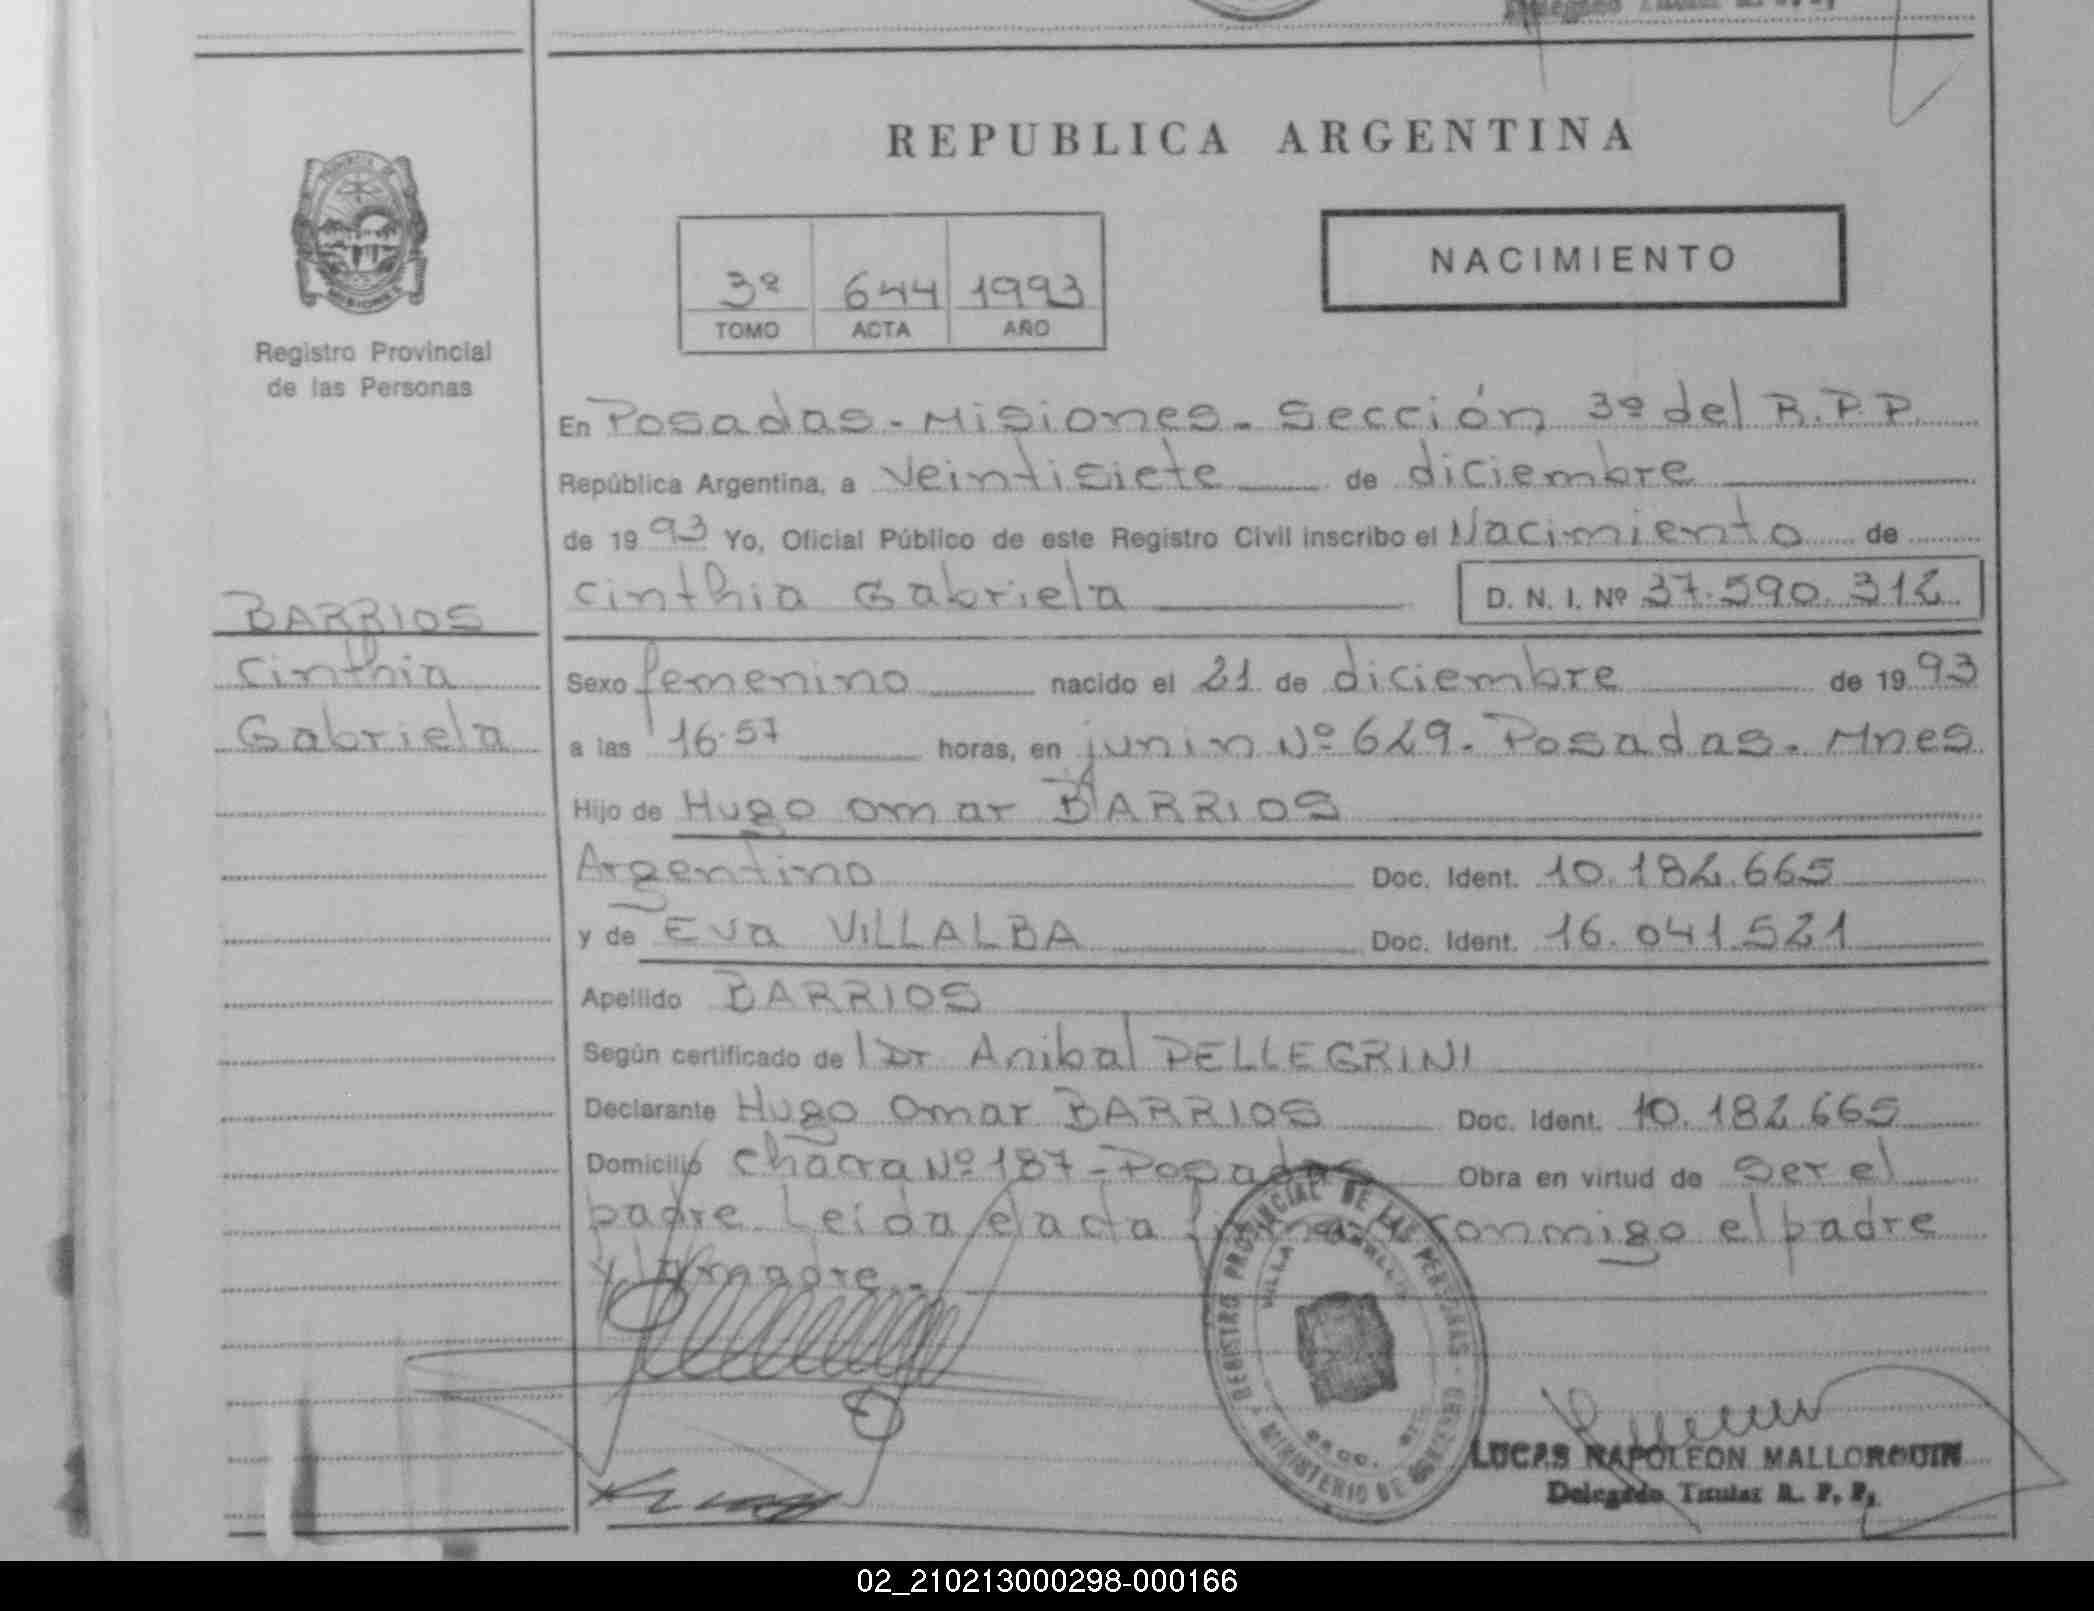 REPUBLICA ARGENTINA
NACIMIENTO
3º 644 1993
TOMO ACTA AÑO
Registro Provincial
de las Personas
En Posadas - Misiones - Sección 3º del R.P.P.
República Argentina, a veintisiete de diciembre
de 1993 Yo, Oficial Público de este Registro Civil inscribo el Nacimiento de
BARRIOS
Cinthia Gabriela D. N. I. Nº 37.590.312
Cinthia
Gabriela
Sexo femenino nacido el 21 de diciembre de 1993
a las 16.57 horas, en junin Nº 629. Posadas. Mnes
Hijo de Hugo Omar BARRIOS
Argentino Doc. Ident. 10.182.665
y de Eva VILLALBA Doc. Ident. 16.041.521
Apellido BARRIOS
Según certificado de l Dr Anibal PELLEGRINI
Declarante Hugo Omar BARRIOS Doc. Ident. 10.182.665
Domicilio Chacra Nº 187 - Posadas Obra en virtud de ser el
padre Leída el acta conmigo el padre
y la madre.
REGISTRO PROVINCIAL DE LAS PERSONAS
MINISTERIO DE
VILLA
LUCAS NAPOLEON MALLORQUIN
Delegado Titular R. P. P.
02_210213000298-000166